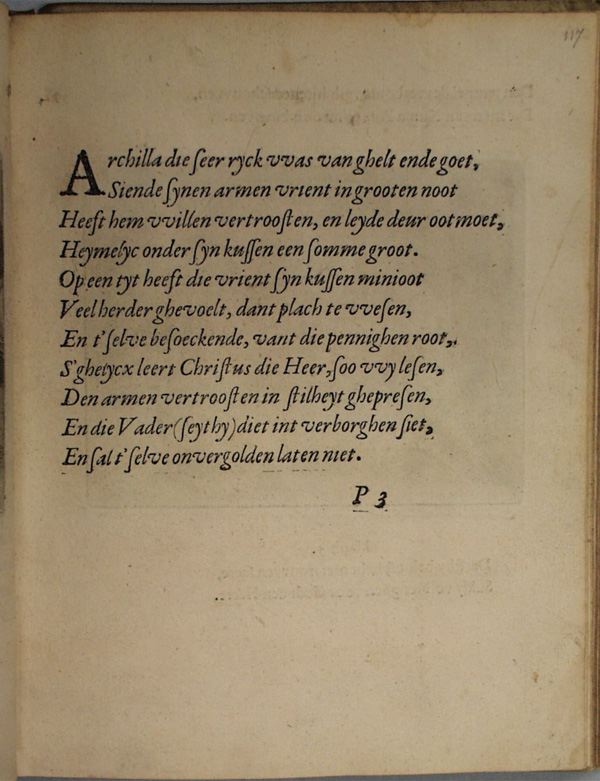 117
Archilla die seer ryck vvas van ghelt ende goet,
Siende synen armen vrient in grooten noot
Heeft hem vvillen vertroosten, en leyde deur ootmoet,
Heymelyc onder syn kussen een somme groot.
Op een tyt heeft die vrient syn kussen minioot
Veel herder ghevoelt, dant plach te vvesen,
En t'selve besoeckende, vant die pennighen root,.
S'ghelycx leert Christus die Heer, soo vvy lesen,
Den armen vertroosten in stilheyt ghepresen,
En die Vader (seyt hy) diet int verborghen siet,
En sal t'selve onvergolden laten niet.
P 3